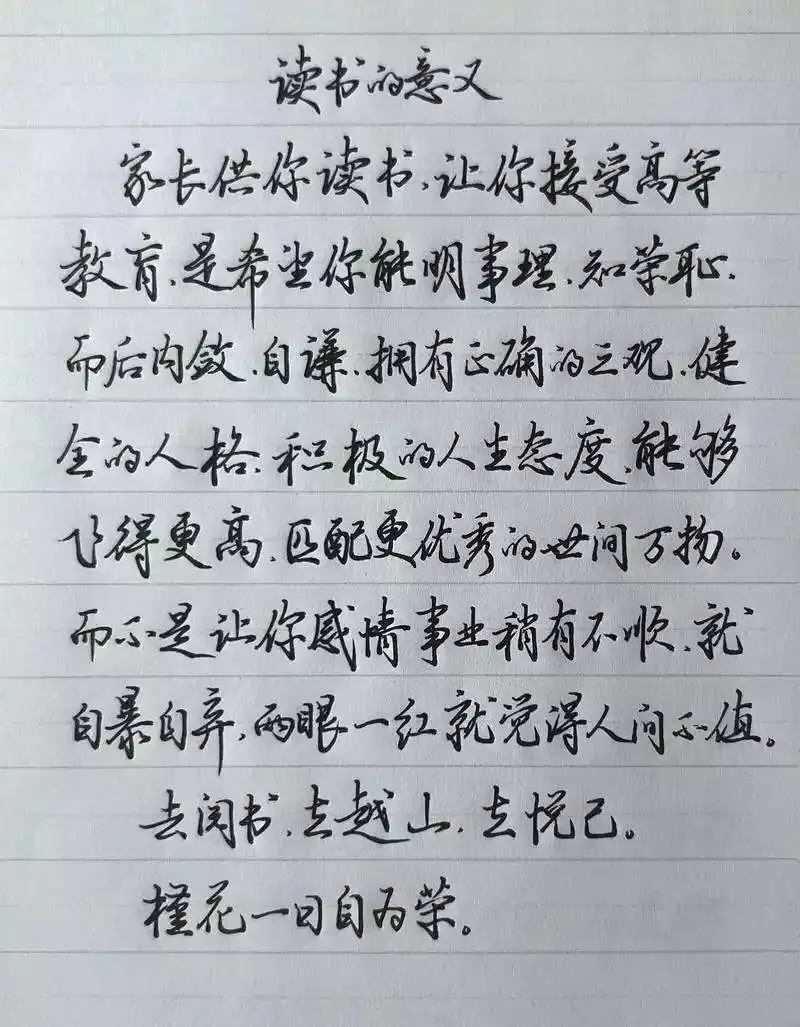 读书的意义
家长供你读书,让你接受高等
教育,是希望你能明事理,知荣耻,
而后内敛,自谦,拥有正确的三观,健
全的人格,积极的人生态度,能够
飞得更高,匹配更优秀的世间万物。
而不是让你感情事业稍有不顺,就
自暴自弃,两眼一红就觉得人间不值。
去阅书,去越山,去悦己。
槿花一日自为荣。